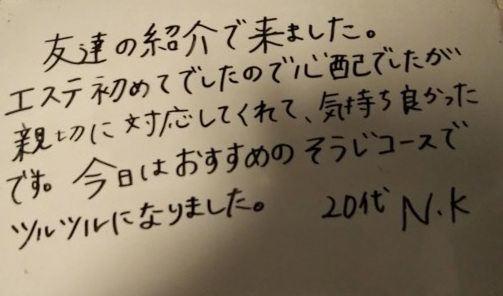 友達の紹介で来ました。
エステ初めてでしたので心配でしたが
親切に対応してくれて、気持ち良かった
です。今日はおすすめのそうじコースで
ツルツルになりました。 20代 N.K